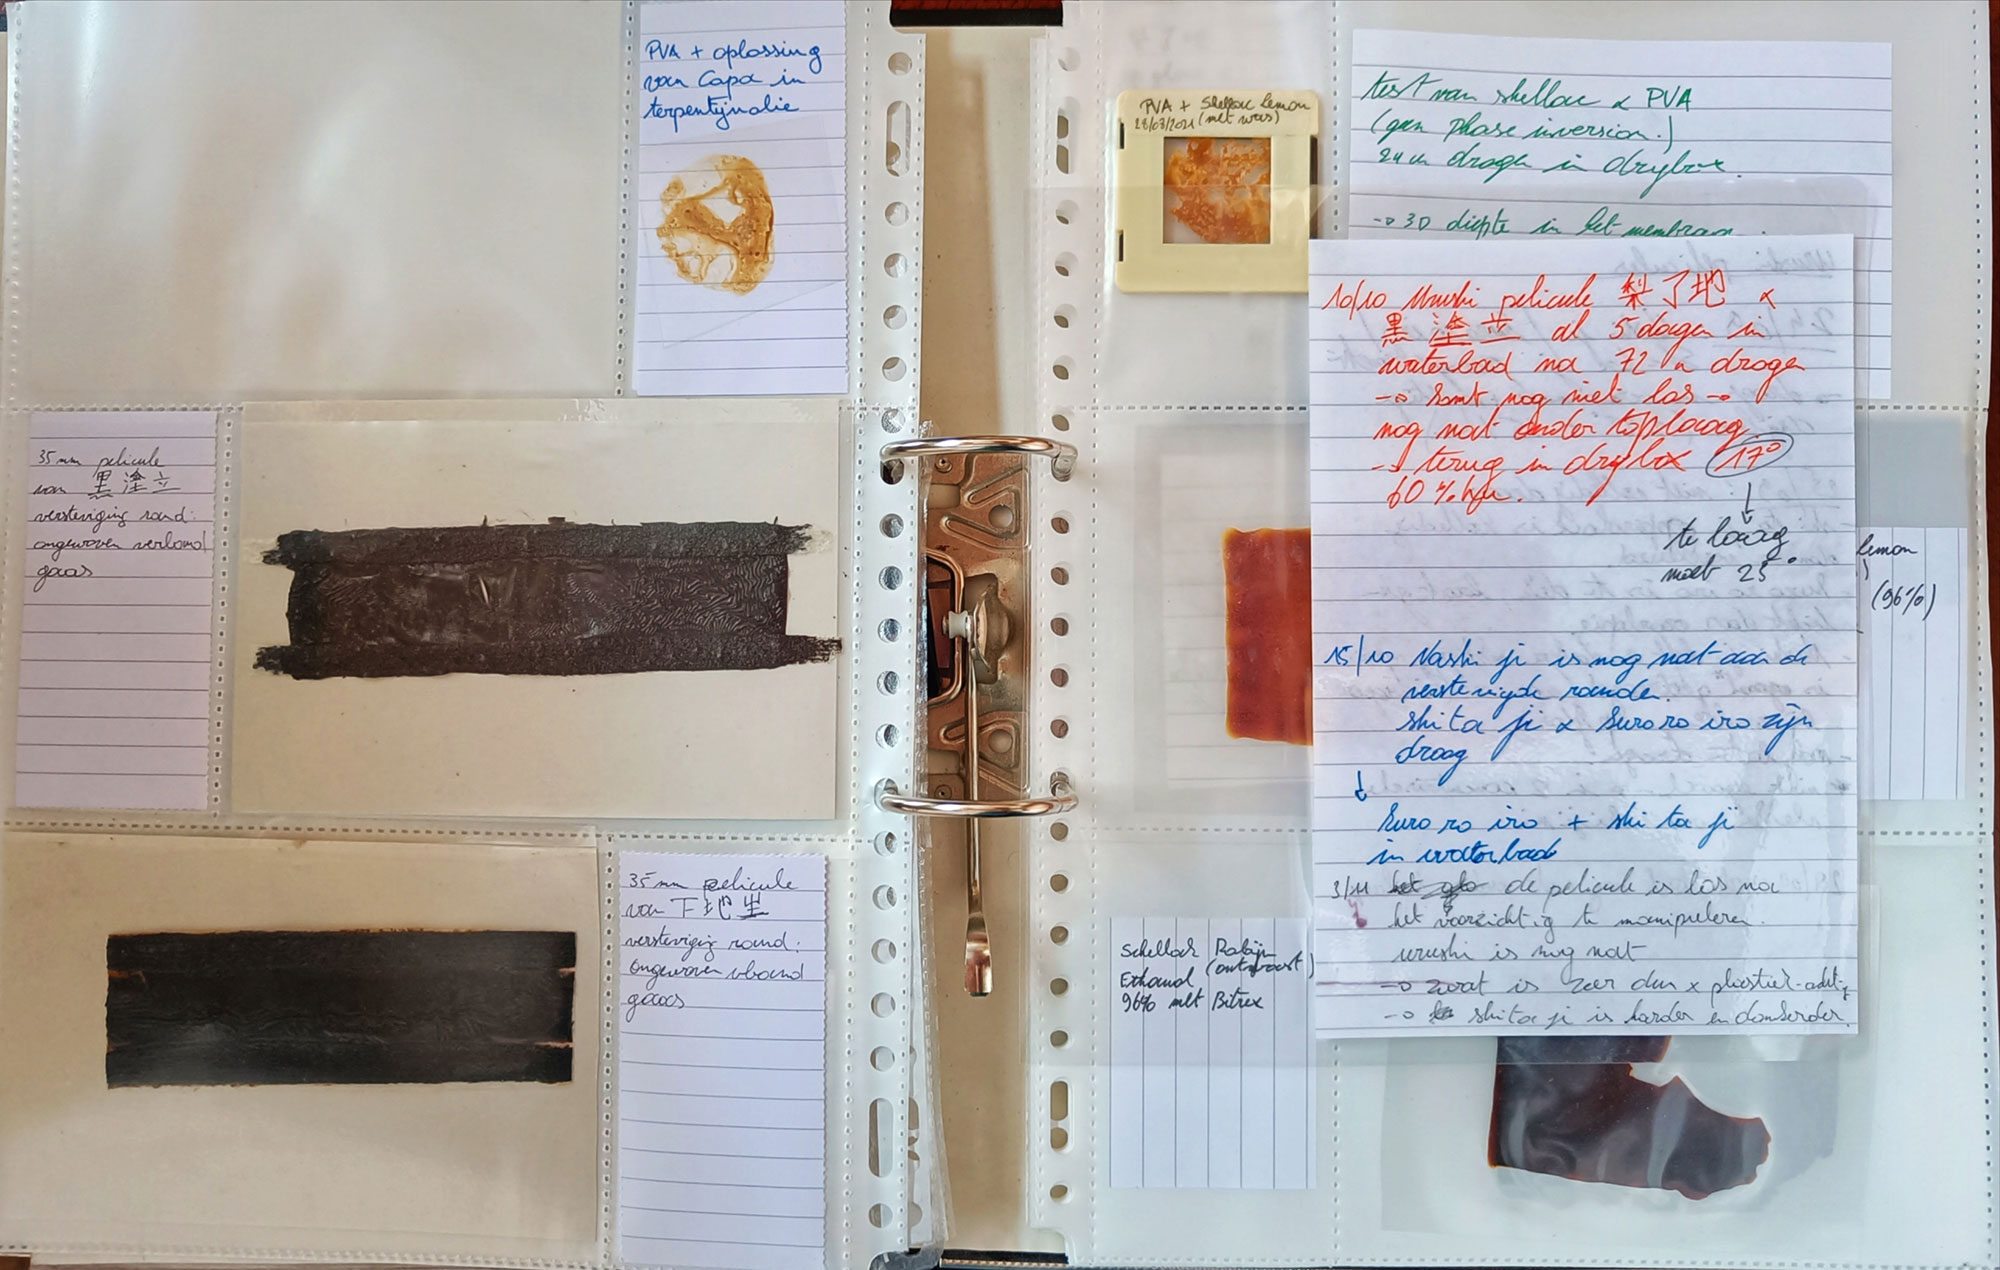 PVA + oplossing
van Copa in
terpentijnolie
35 mm pelicule
van 黒塗立
versteviging rand:
ongewoven verband
gaas
35 mm pelicule
van 下地生
versteviging rand:
ongewoven vband
gaas
PVA + Shellac Lemon
28/03/2021 (met was)
test van shellac & PVA
(geen phase inversion.)
24 u drogen in drybox.
→ 3D diepte in het membraan
10/10 Urushi pelicule 梨了地 &
黒塗立 al 5 dagen in
waterbad na 72 u drogen
→ komt nog niet los →
nog nat onder toplaag
→ terug in drybox 17°
60 % hu.
↓
te laag
moet 25°
15/10 Nashi ji is nog nat aan de
verstevigde randen.
shita ji & kuro ro iro zijn
droog
↓
kuro ro iro + shi ta ji
in waterbad
3/11 de pelicule is los na
het voorzichtig te manipuleren.
urushi is nog nat
→ zwart is zeer dun &
→ shita ji is harder en donkerder
lemon
(96%)
Schellack Robijn
Ethanol (ontwast)
96% met Bitrex